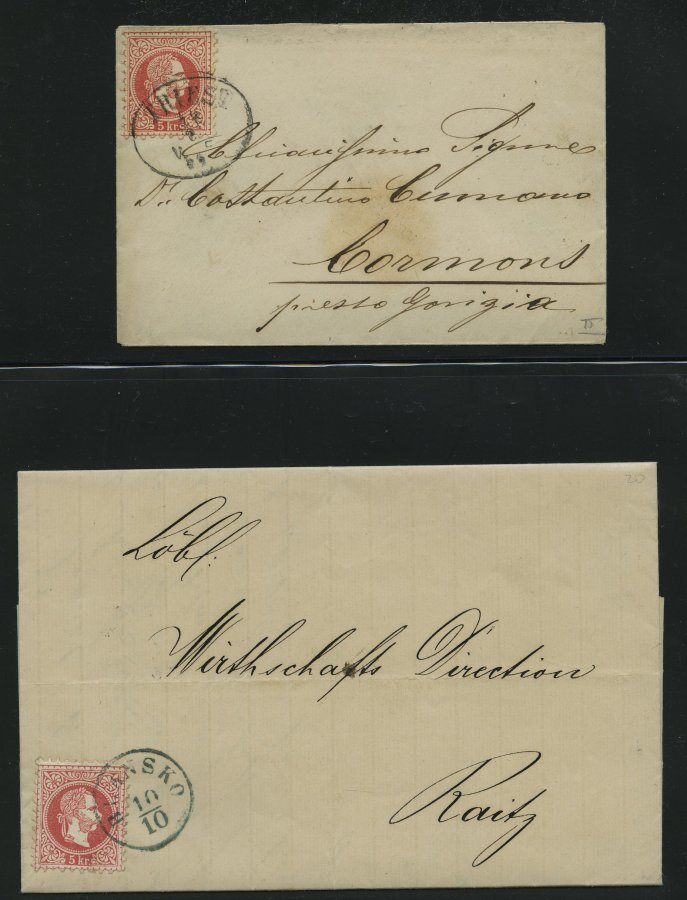 5 kr.
TRIEST
Chiarissimo Signore
Dr. Costantino Cumano
Cormons
presto Gorizia
II
20
Löbl.
Wirthschafts Direction
Raitz
BLANSKO
10
10
5 kr.